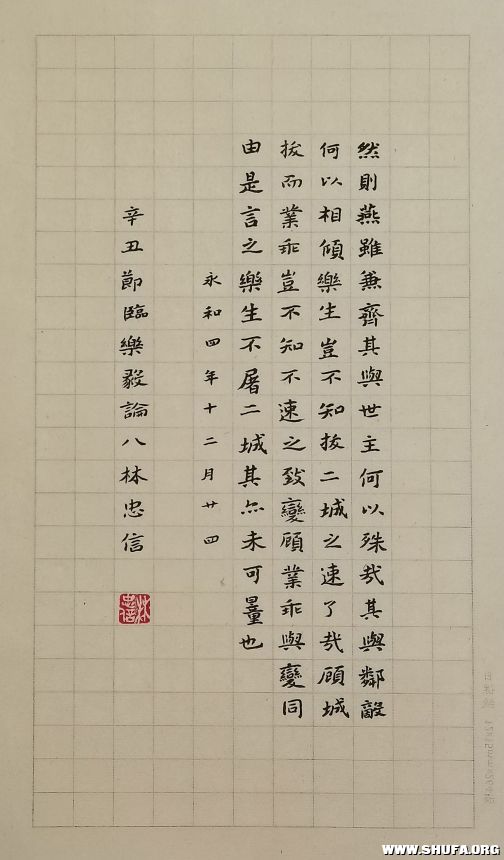 然則燕雖兼齊其與世主何以殊哉其與鄰敵
何以相傾樂生豈不知拔二城之速了哉顧城
拔而業乖豈不知不速之致變顧業乖與變同
由是言之樂生不屠二城其亦未可量也
永和四年十二月廿四
辛丑節臨樂毅論八林忠信
林忠信
WWW.SHUFA.ORG